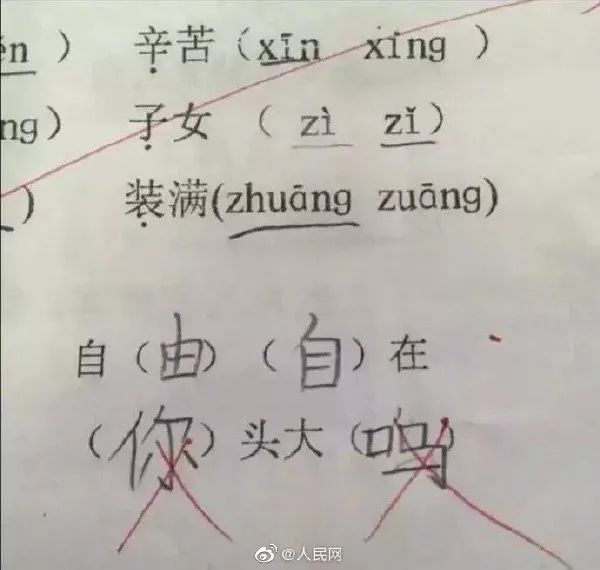 ěn ） 辛苦（xīn xīng ）
ng) 子女 （ zì zǐ）
) 装满(zhuāng zuāng)
自（由）（自）在
（你）头大（吗）
@人民网